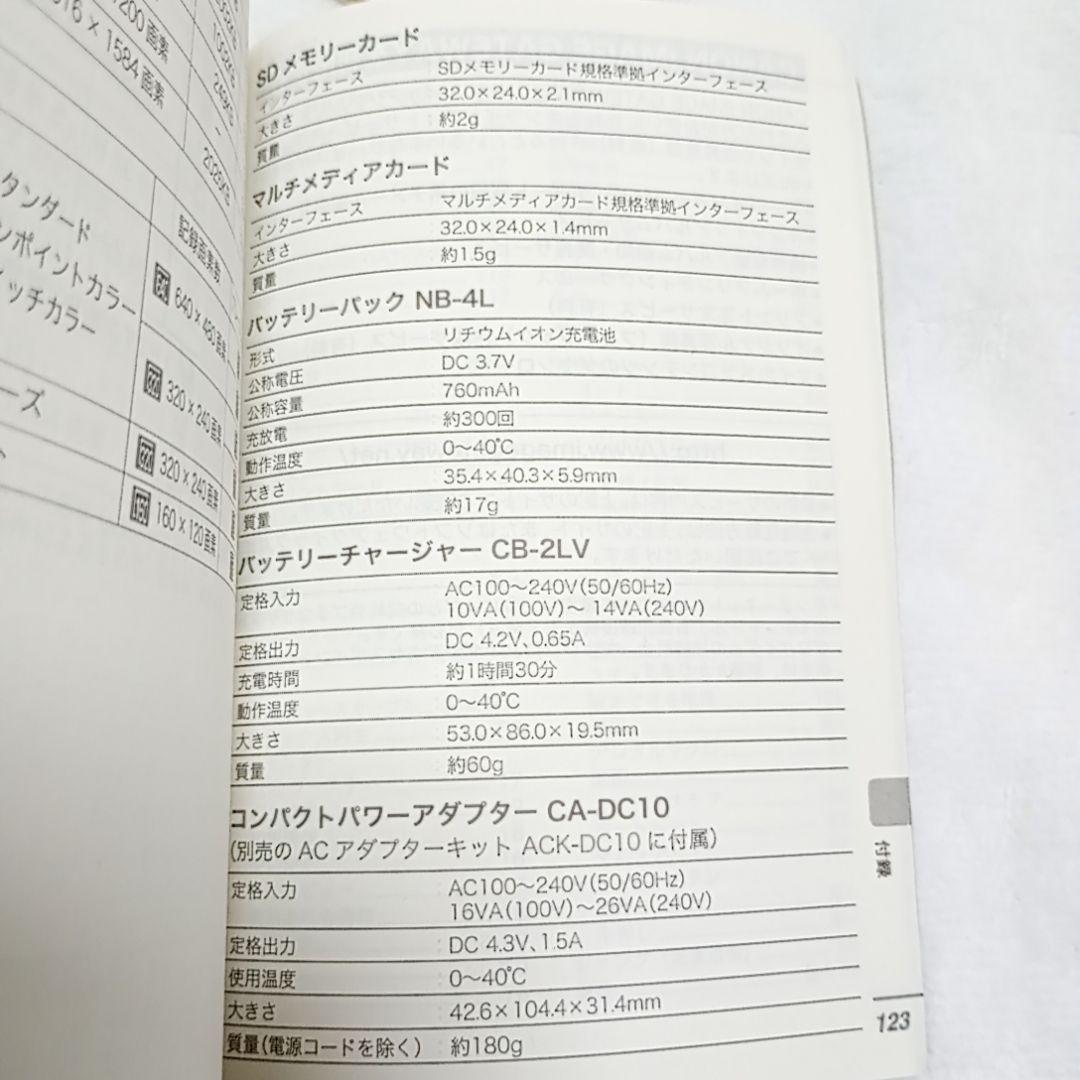 1200画素
1584画素
2025KB
タンダード
ンポイントカラー
ッチカラー
ーズ
記録画素数
640×480画素
320×240画素
320×240画素
160×120画素
SDメモリーカード
インターフェース : SDメモリーカード規格準拠インターフェース
大きさ : 32.0×24.0×2.1mm
質量 : 約2g
マルチメディアカード
インターフェース : マルチメディアカード規格準拠インターフェース
大きさ : 32.0×24.0×1.4mm
質量 : 約1.5g
バッテリーパック NB-4L
形式 : リチウムイオン充電池
公称電圧 : DC 3.7V
公称容量 : 760mAh
充放電 : 約300回
動作温度 : 0〜40℃
大きさ : 35.4×40.3×5.9mm
質量 : 約17g
バッテリーチャージャー CB-2LV
定格入力 : AC100〜240V(50/60Hz)
10VA(100V)〜 14VA(240V)
定格出力 : DC 4.2V、0.65A
充電時間 : 約1時間30分
動作温度 : 0〜40℃
大きさ : 53.0×86.0×19.5mm
質量 : 約60g
コンパクトパワーアダプター CA-DC10
(別売の AC アダプターキット ACK-DC10 に付属)
定格入力 : AC100〜240V(50/60Hz)
16VA(100V)〜26VA(240V)
定格出力 : DC 4.3V、1.5A
使用温度 : 0〜40℃
大きさ : 42.6×104.4×31.4mm
質量(電源コードを除く) : 約180g
付録
123